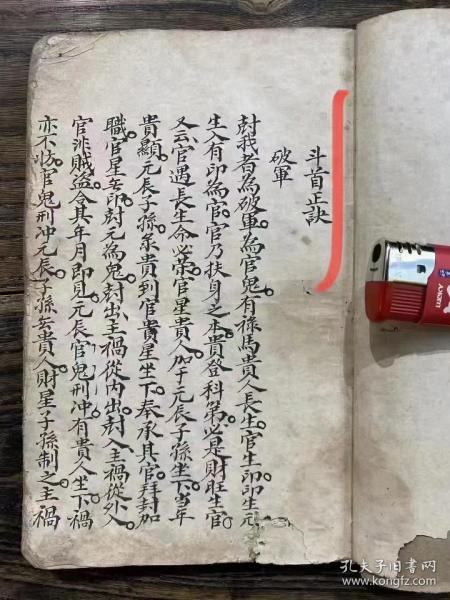 斗首正訣
破軍
尅我者為破軍為官鬼有祿馬貴人長生官生印印生元
生入有印為官官乃扶身之本貴登科第必是財旺生官
又云官遇長生命必榮官星貴人加于元辰子孫坐下當年
貴顯元辰子孫乘貴到官貴星坐下奉承其官拜封加
職官星無印尅元為鬼尅出主禍從內出尅入主禍從外入
官非賊盜合其年月即見元辰官鬼刑冲有貴人坐下禍
亦不妨官鬼刑冲元辰子孫無貴人財星子孫制之主禍
孔夫子旧书网
www.kongfz.com